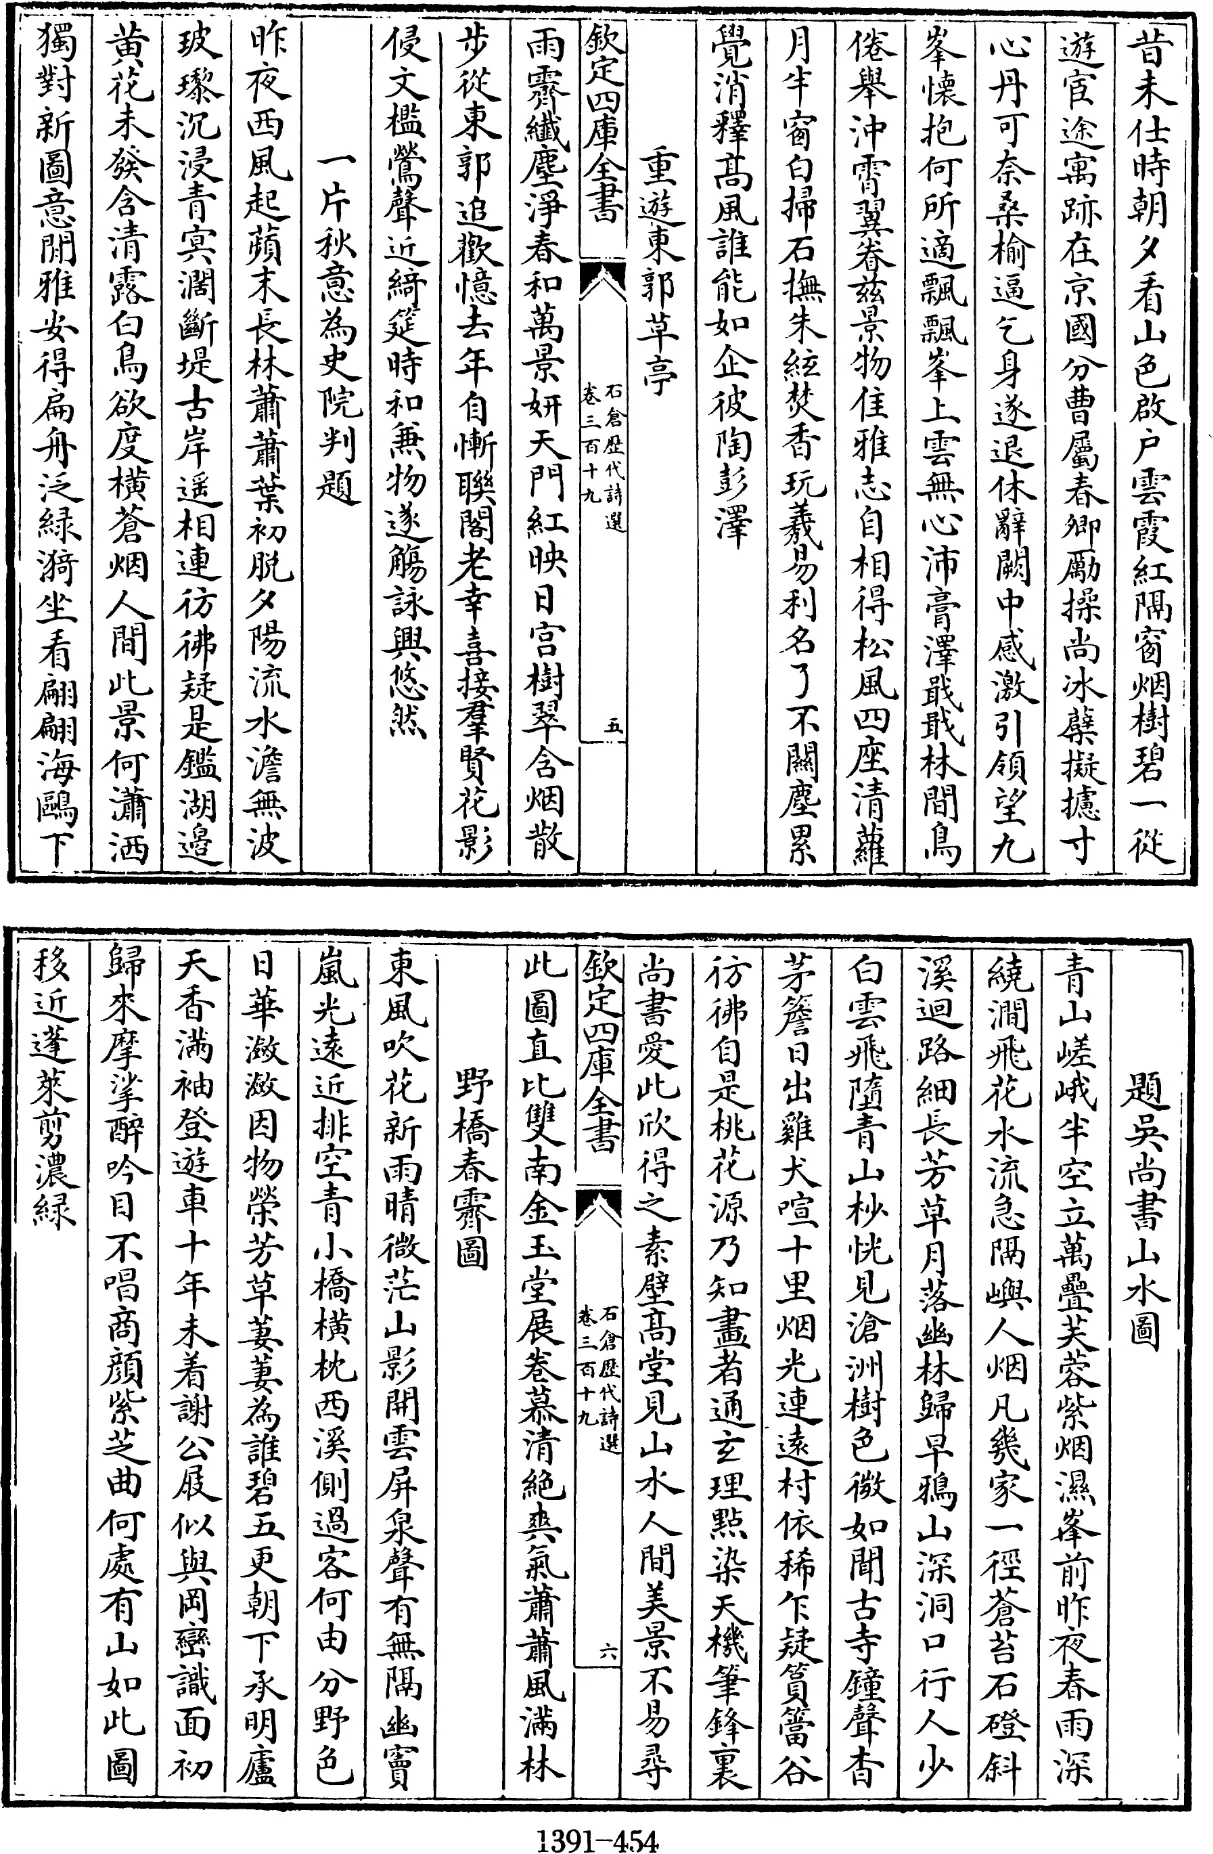 昔未仕時朝夕看山色啟户雲霞紅隔窗烟樹碧一從
遊宦途寓跡在京國分曹屬春卿勵操尚冰蘗擬攄寸
心丹可奈桑榆逼乞身遂退休辭闕中感激引領望九
峯懐抱何所適飄飄峯上雲無心沛膏澤戢戢林間鳥
倦舉沖霄翼眷兹景物佳雅志自相得松風四座清蘿
月半窗白掃石撫朱絃焚香玩羲易利名了不關塵累
覺消釋髙風誰能如企彼陶彭澤
重遊東郭草亭
欽定四庫全書
石倉歴代詩選
卷三百十九
五
雨霽纖塵淨春和萬景妍天門紅映日宫樹翠含烟散
步從東郭追歡憶去年自慚聯閣老幸喜接羣賢花影
侵文檻鶯聲近綺筵時和兼物遂觴詠興悠然
一片秋意為史院判題
昨夜西風起蘋末長林蕭蕭葉初脱夕陽流水澹無波
玻瓈沉浸青㝠濶斷堤古岸遥相連彷彿疑是鑑湖邉
黄花未發含清露白鳥欲度横蒼烟人間此景何瀟洒
獨對新圖意閒雅安得扁舟泛緑漪坐看翩翩海鷗下
題吳尚書山水圖
青山嵯峨半空立萬疊芙蓉紫烟濕峯前昨夜春雨深
繞澗飛花水流急隔嶼人烟凡幾家一徑蒼苔石磴斜
溪迴路細長芳草月落幽林歸早鴉山深洞口行人少
白雲飛墮青山杪恍見滄洲樹色微如聞古寺鐘聲杳
茅簷日出雞犬喧十里烟光連遠村依稀乍疑篔簹谷
彷彿自是桃花源乃知畫者通玄理點染天機筆鋒裏
尚書愛此欣得之素壁髙堂見山水人間美景不易尋
欽定四庫全書
石倉歴代詩選
卷三百十九
六
此圖直比雙南金玉堂展卷慕清絶爽氣蕭蕭風滿林
野橋春霽圖
東風吹花新雨晴微茫山影開雲屏泉聲有無隔幽竇
嵐光遠近排空青小橋横枕西溪側過客何由分野色
日華瀲瀲因物榮芳草萋萋為誰碧五更朝下承明廬
天香滿袖登遊車十年未着謝公屐似與岡巒識面初
歸來摩挲醉吟目不唱商顔紫芝曲何處有山如此圖
移近蓬萊剪濃緑
1391-454